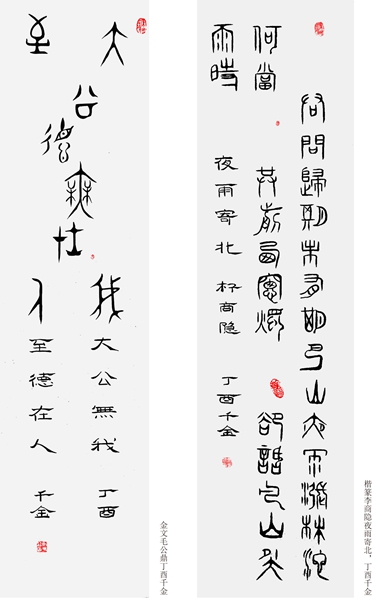 君問歸期未有期巴山夜雨漲秋池
何當共剪西窗燭卻話巴山夜
雨時
夜雨寄北 李商隐 丁酉千金
楷篆李商隐夜雨寄北,丁酉千金
大公無我
至德在人
大公無我 丁酉
至德在人 千金
金文毛公鼎丁酉千金